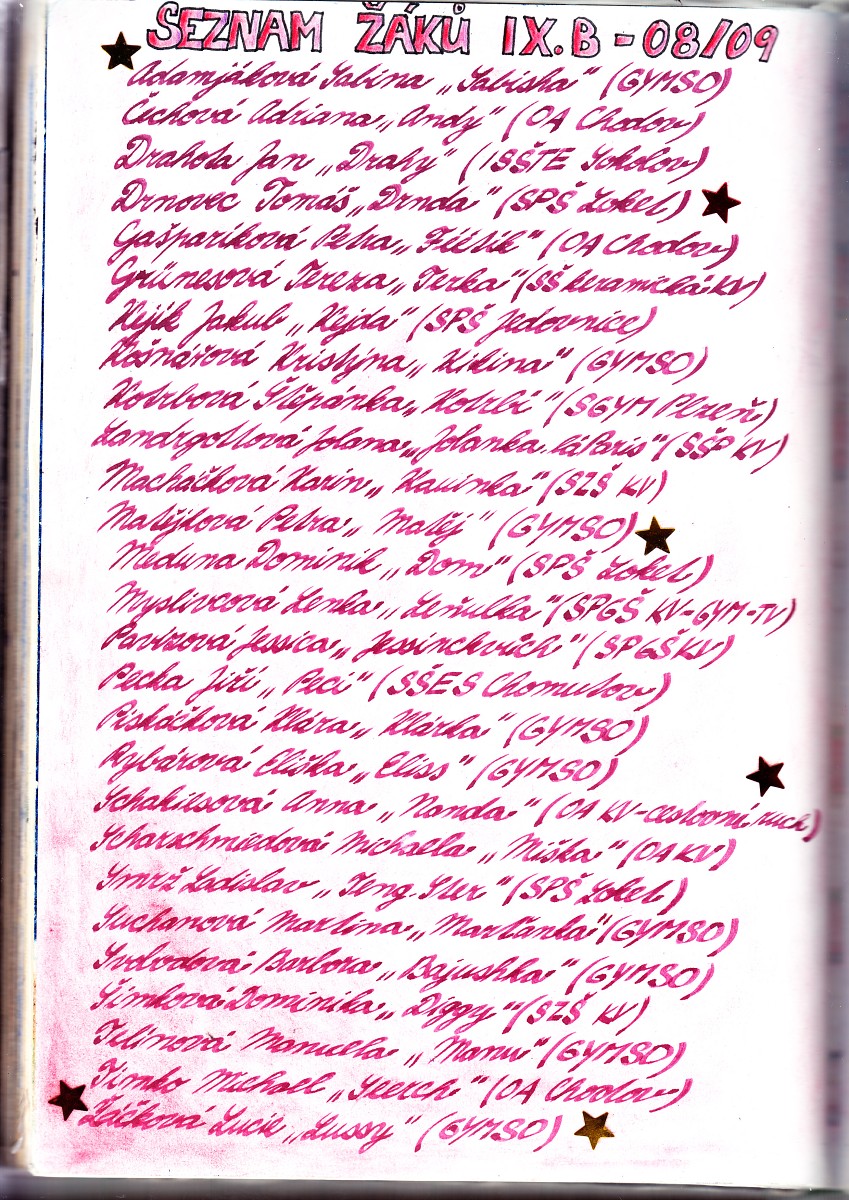 SEZNAM ŽÁKŮ IX.B - 08/09
Adamjáková Sabina „Sabisha" (GYMSO)
Čechová Adriana „Andy" (OA Chodov)
Drahota Jan „Drahy" (ISŠTE Sokolov)
Drnovec Tomáš „Drnda" (SPŠ Loket)
Gašparíková Petra (OA Chodov)
Grünesová Tereza „Terka" (SŠ keramická KV)
Hejk Jakub „Hejda" (SPŠ Jedovnice)
Košnařová Kristýna „Kikina" (GYMSO)
Kotrbová Štěpánka „Kotrbí" (SGYM Plzeň)
Landrgottová Jolana „Jolanka lá Paris" (SŠP KV)
Macháčková Karin „Kauinka" (SZŠ KV)
Matějková Petra „Matěj" (GYMSO)
Meduna Dominik „Dom" (SPŠ Loket)
Myslivcová Lenka „Leňulka" (SPGŠ KV-GYM-TV)
Pavízová Jessica (SPGŠ KV)
Pecka Jiří „Peci" (SŠES Chomutov)
Piskáčková Klára „Klárka" (GYMSO)
Rybárová Eliška „Eliss" (GYMSO)
Schakilsová Anna „Nanda" (OA KV-cestovní ruch)
Scharschmiedová Michaela „Miška" (OA KV)
Smrž Ladislav (SPŠ Loket)
Suchanová Martina „Marťanka" (GYMSO)
Svobodová Barbora „Bajushka" (GYMSO)
Šimková Dominika „Diggy" (SZŠ KV)
Telínová Manuela „Manu" (GYMSO)
Timko Michael (OA Chodov)
Žáčková Lucie „Lussy" (GYMSO)